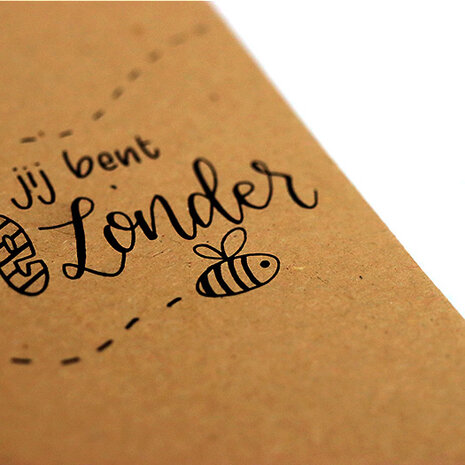 jij bent
Zonder